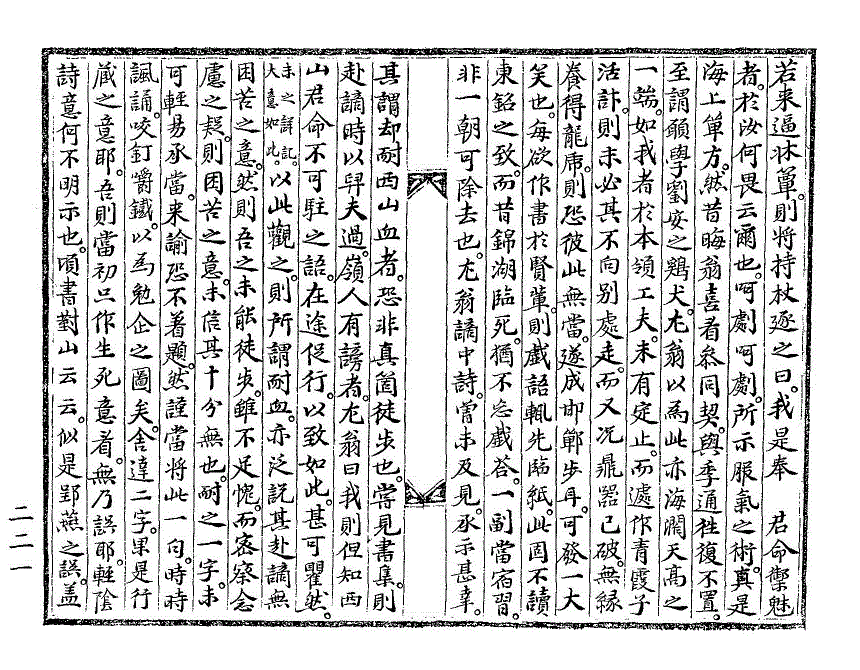 若来逼牀簟。則將持杖逐之曰。我是奉　君命禦魅
者。於汝何畏云爾也。呵劇呵劇。所示服氣之術。眞是
海上單方。然昔晦翁喜看參同契。與季通往復不置。
至謂願學劉安之鷄犬。尤翁以爲此亦海闊天高之
一端。如我者於本領工夫。未有定止。而遽作靑霞子
活計。則未必其不向别處走。而又况鼎器已破。無緣
養得龍虎。則恐彼此無當。遂成邯鄲步耳。可發一大
笑也。每欲作書於賢輩。則戱語輒先臨紙。此固不讀
東銘之致。而昔錦湖臨死。猶不忘戱荅。一副當宿習。
非一朝可除去也。尤翁謫中詩。曾未及見。承示甚幸。
其謂却耐西山血者。恐非眞箇徒步也。嘗見書集。則
赴謫時以舁夫過嶺。人有謗者。尤翁曰我則但知西
山君命不可駐之語。在途促行。以致如此。甚可瞿然。
未之詳記。大意如此。以此觀之。則所謂耐血。亦泛説其赴謫無
困苦之意。然則吾之未能徒步。雖不足愧。而密察念
慮之疑。則困苦之意。未信其十分無也。耐之一字。未
可輕易承當。来諭恐不着題。然謹當將此一句。時時
諷誦。咬釘嚼鐵。以爲勉企之圖矣。舍達二字。果是行
藏之意耶。吾則當初只作生死意看。無乃誤耶。輕陰
詩意何不明示也。頃書對山云云。似是郢燕之誤。盖
二二一